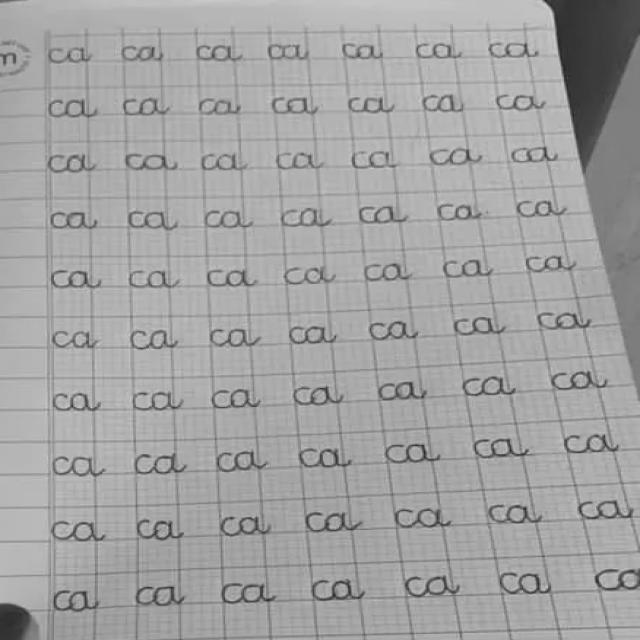 m
ca ca ca ca ca ca ca
ca ca ca ca ca ca ca
ca ca ca ca ca ca ca
ca ca ca ca ca ca ca
ca ca ca ca ca ca ca
ca ca ca ca ca ca ca
ca ca ca ca ca ca ca
ca ca ca ca ca ca ca
ca ca ca ca ca ca ca
ca ca ca ca ca ca ca